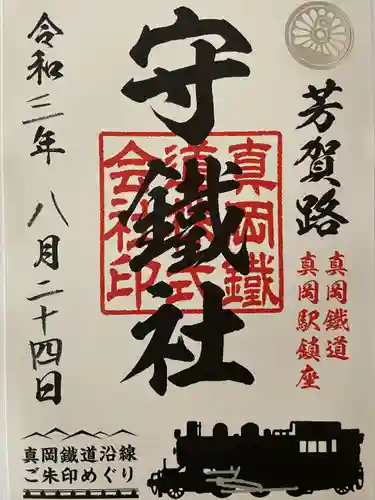 芳賀路
真岡鐵道
真岡駅鎮座
守鐵社
真岡鐵
道株式
会社印
令和三年 八月二十四日
真岡鐵道沿線
ご朱印めぐり